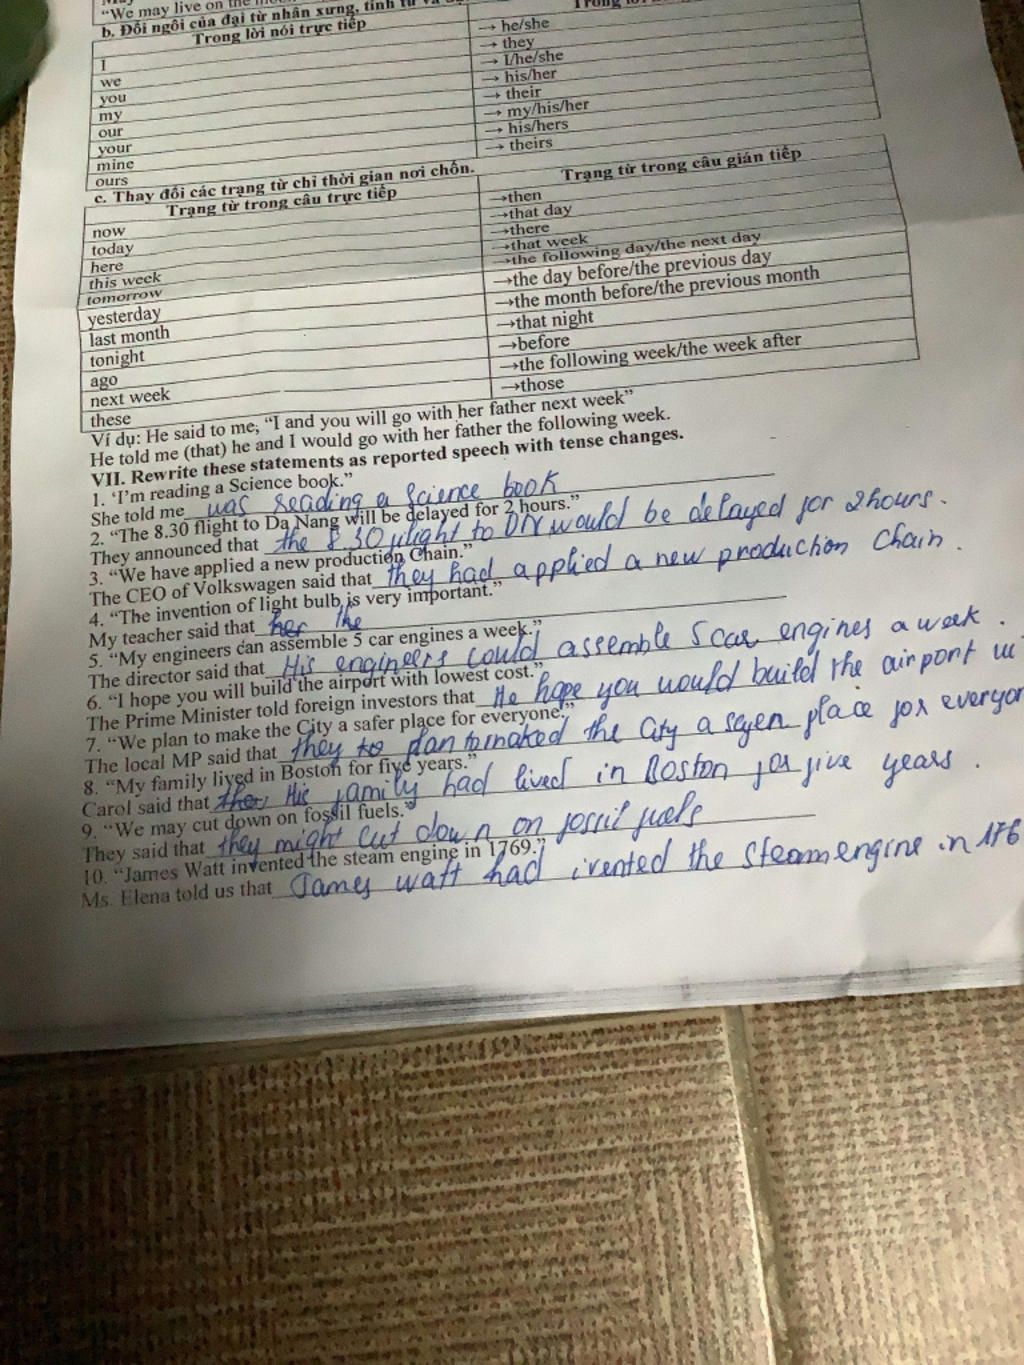 "We may live on the
b. Đổi ngôi của đại từ nhân xưng, tính từ và
Trong lời nói trực tiếp
I → he/she
we → they
you → I/he/she
my → his/her
our → their
your → my/his/her
mine → his/hers
ours → theirs
c. Thay đổi các trạng từ chỉ thời gian nơi chốn.
Trạng từ trong câu trực tiếp Trạng từ trong câu gián tiếp
now →then
today →that day
here →there
this week →that week
tomorrow →the following day/the next day
yesterday →the day before/the previous day
last month →the month before/the previous month
tonight →that night
ago →before
next week →the following week/the week after
these →those
Ví dụ: He said to me, "I and you will go with her father next week"
He told me (that) he and I would go with her father the following week.
VII. Rewrite these statements as reported speech with tense changes.
1. 'I'm reading a Science book."
She told me was reading a Science book
2. "The 8.30 flight to Da Nang will be delayed for 2 hours."
They announced that the 8 30 flight to DN would be delayed for 2 hours.
3. "We have applied a new production Chain."
The CEO of Volkswagen said that they had applied a new production Chain.
4. "The invention of light bulb is very important."
My teacher said that her the
5. "My engineers can assemble 5 car engines a week."
The director said that His engineers could assemble 5 car engines a week.
6. "I hope you will build the airport with lowest cost."
The Prime Minister told foreign investors that He hope you would build the airport
7. "We plan to make the City a safer place for everyone,"
The local MP said that they to plan to maked the City a place for everyon
8. "My family lived in Boston for five years."
Carol said that His family had lived in Boston for five years.
9. "We may cut down on fossil fuels."
They said that they might cut down on fossil fuels
10. "James Watt invented the steam engine in 1769."
Ms. Elena told us that James watt had ivented the steam engine in 176